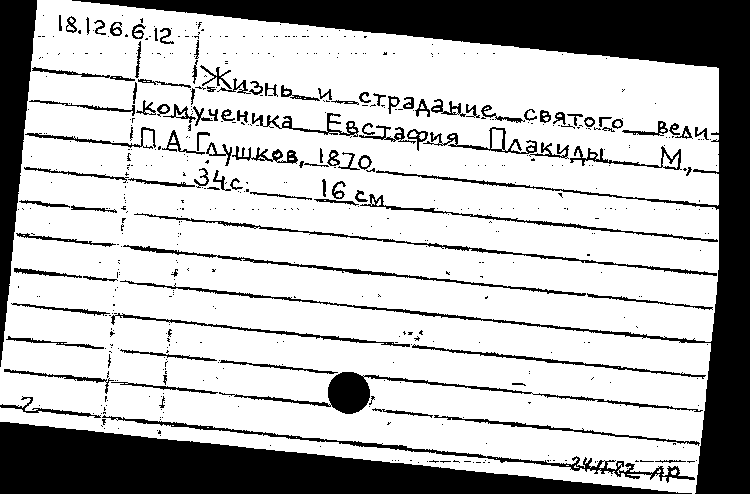 18.126.6.12
Жизнь и страдание святого вели-
комученика Евстафия Плакиды М.,
П.А. Глушков, 1870.
34с. 16 см
2
24.11.82 АР